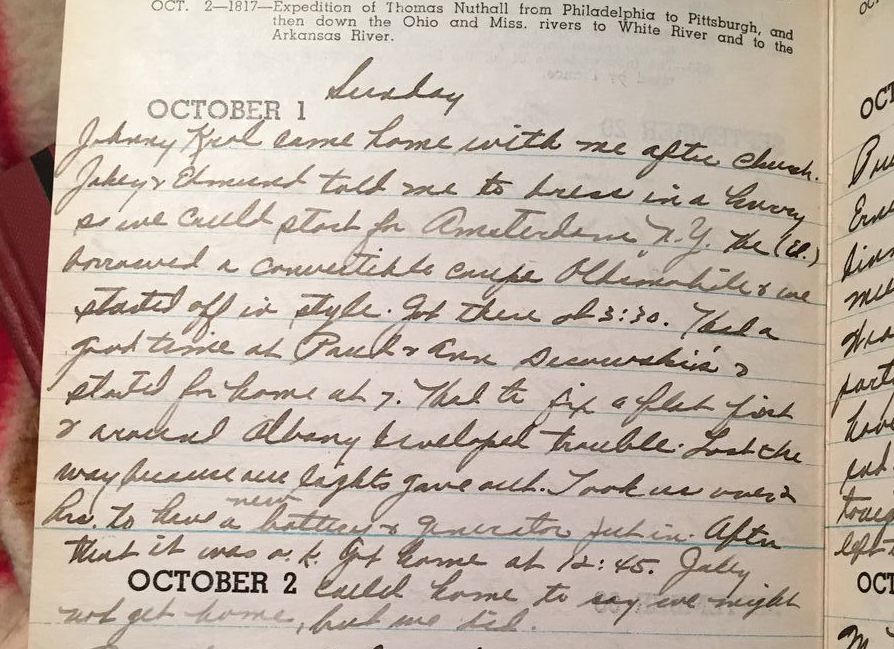 OCT. 2—1817—Expedition of Thomas Nuthall from Philadelphia to Pittsburgh, and
then down the Ohio and Miss. rivers to White River and to the
Arkansas River.
Sunday
OCTOBER 1
Johnny Krol came home with me after church.
Jakey & Edmund told me to dress in a hurry
so we could start for Amsterdam N.Y. He (Ed.)
borrowed a convertible coupe Oldsmobile & we
started off in style. Got there at 3:30. Had a
good time at Paul & Ann &
started for home at 7. Had to fix a flat first
& around Albany developed trouble. Lost the
way because our lights gave out. Took us over 2
hrs. to have a new battery & generator put in. After
that it was o.k. Got home at 12:45. Jakey
OCTOBER 2
called home to say we might
not get home, but we did.
OCT